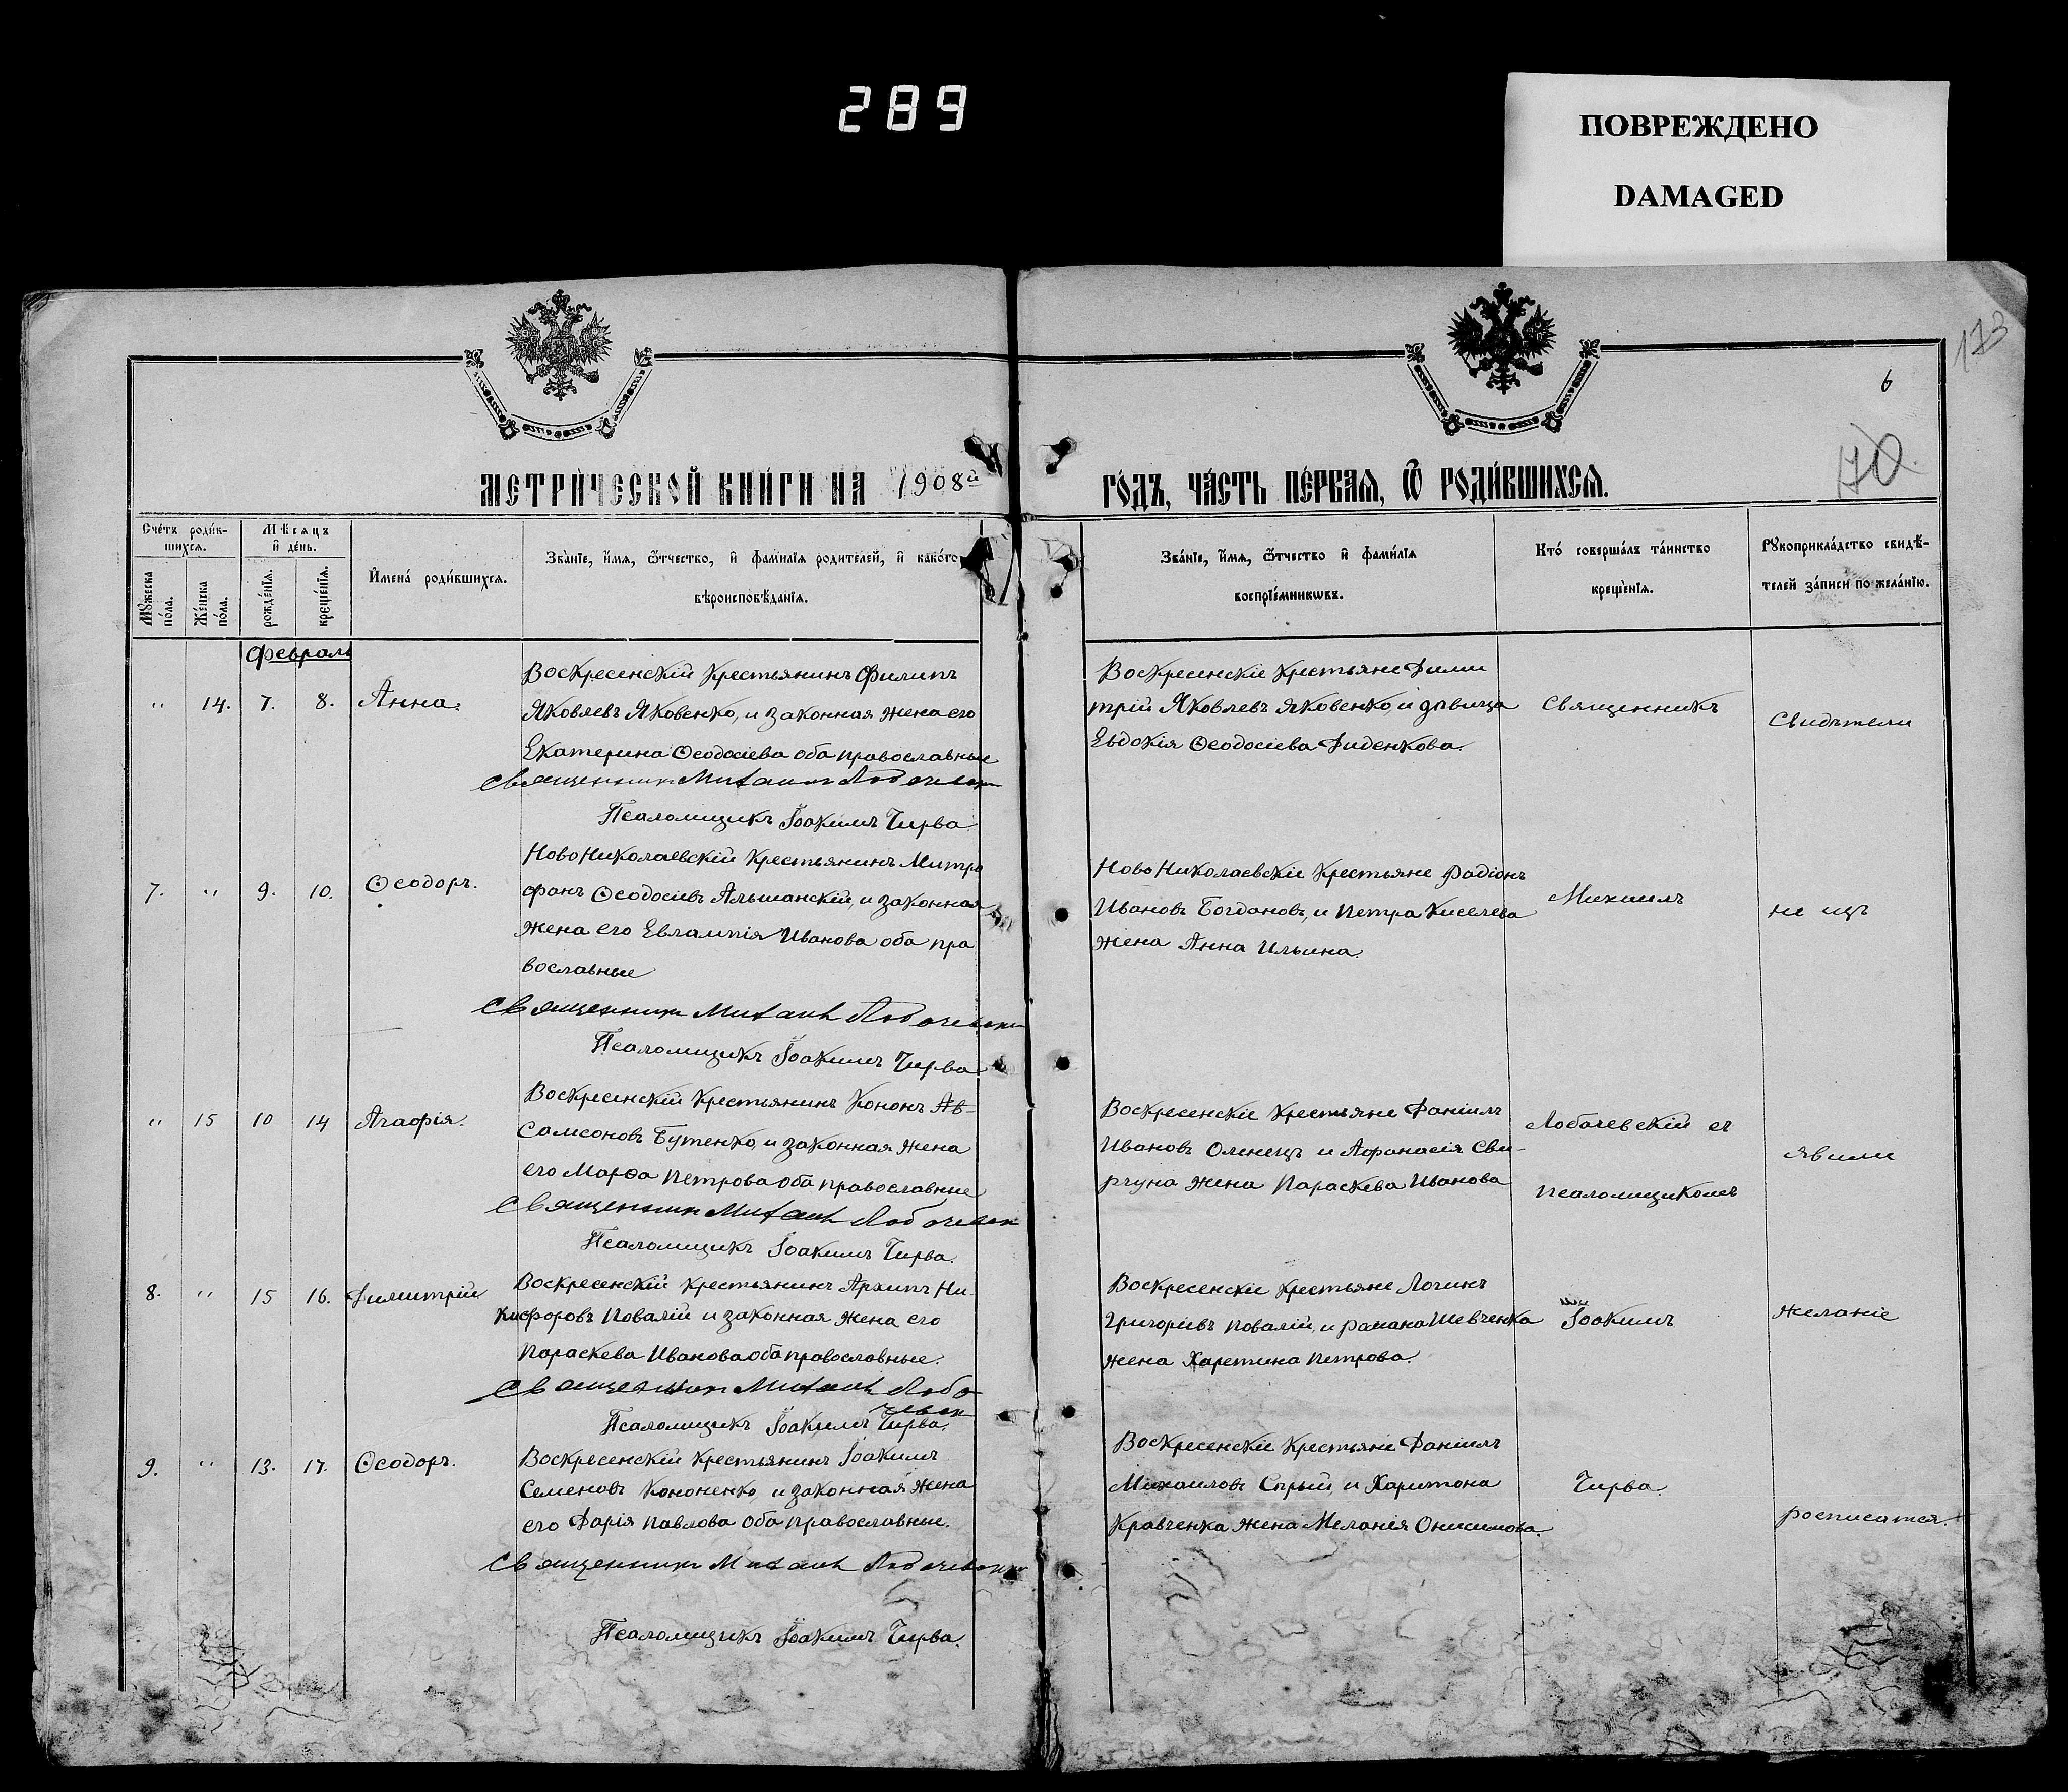 289
ПОВРЕЖДЕНО
DAMAGED
173
6
70.
МЕТРИ́ЧЕСКОЙ КНИ́ГИ НА 1908й
ГО́ДЪ, ЧА́СТЬ ПЕ́РВАѦ, Ѿ РОДИ́ВШИХСѦ.
Сче́тъ роди́в-
шихсѧ.
Мѣ́сѧцъ
и҆ де́нь.
Мꙋ́жеска
по́ла.
Же́нска
по́ла.
рожде́нїѧ.
креще́нїѧ.
И҆мена̀ роди́вшихсѧ.
Зва́нїе, и҆́мѧ, ѻ҆́тчество, и҆ фами́лїѧ роди́телей, и҆ како́го
вѣроисповѣ́данїѧ.
Зва́нїе, и҆́мѧ, ѻ҆́тчество и҆ фами́лїѧ
воспрїе́мникѡвъ.
Кто̀ соверша́лъ та́инство
креще́нїѧ.
Рꙋкоприкла́дство свидѣ́-
телей за́писи по жела́нїю.
Февраль
" 14. 7. 8. Анна.
Воскресенскій крестьянинъ Филипъ
Яковлевъ Яковенко, и законная жена его
Екатерина Ѳеодосіева оба православные
Священник Михаил Лобачевск
Псаломщикъ Іоакимъ Чирва.
Воскресенскіе крестьяне Дими
трій Яковлевъ Яковенко, и дѣвица
Евдокія Ѳеодосіева Диденкова.
Священникъ
Свидѣтели
7. " 9. 10. Ѳеодоръ.
НовоНиколаевскій крестьянинъ Митро
фанъ Ѳеодосіевъ Альшанскій, и законная
жена его Евлампія Иванова оба пра
вославные
Священник Михаил Лобачевски
Псаломщикъ Іоакимъ Чирва
НовоНиколаевскіе крестьяне Радіонъ
Ивановъ Богдановъ, и Петра Киселева
жена Анна Ильина.
Михаилъ
не изъ
" 15 10 14 Агафія.
Воскресенскій крестьянинъ Кононъ Ав-
самсоновъ Бутенко, и законная жена
его Марѳа Петрова оба православные
Священник Михаил Лобачевск
Псаломщикъ Іоакимъ Чирва.
Воскресенскіе крестьяне Даніилъ
Ивановъ Оленецъ и Афанасія Сви-
ргуна жена Параскева Иванова
Лобачевскій съ
псаломщикомъ
явили
8. " 15 16. Димитрій
Воскресенскій крестьянинъ Архипъ Ни-
кифоровъ Повалій и законная жена его
Параскева Иванова оба православные.
Священник Михаил Лоба
чевск
Псаломщикъ Іоакимъ Чирва.
Воскресенскіе крестьяне Логинъ
Григоріевъ Повалій, и Романа Шевченка
жена Харетина Петрова.
Іоакимъ
желаніе
9. " 13. 17. Ѳеодоръ.
Воскресенскій крестьянинъ Іоакимъ
Семеновъ Кононенко, и законная жена
его Дарія Павлова оба православные.
Священник Михаил Лобачевски
Псаломщикъ Іоакимъ Чирва.
Воскресенскіе крестьяне Даніилъ
Михаиловъ Сѣрый, и Харитона
Кравченка жена Меланія Онисимова.
Чирва.
росписатся.